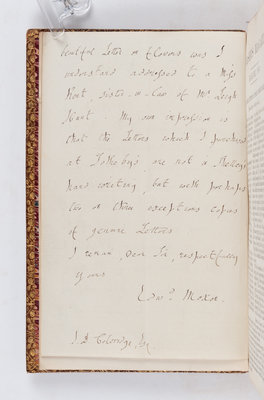 beautiful Letter on Florence was I
understand addressed to a Miss
Kent, sister-in-law of Mr Leigh
Hunt. My own impression is
that the Letters which I purchased
at Sotheby's are not in Shelley's
hand writing, but with perhaps
two or three exceptions copies
of genuine Letters
I remain, Dear Sir, respectfully
yours
Edwd. Moxon.
J. D. Coleridge Esq